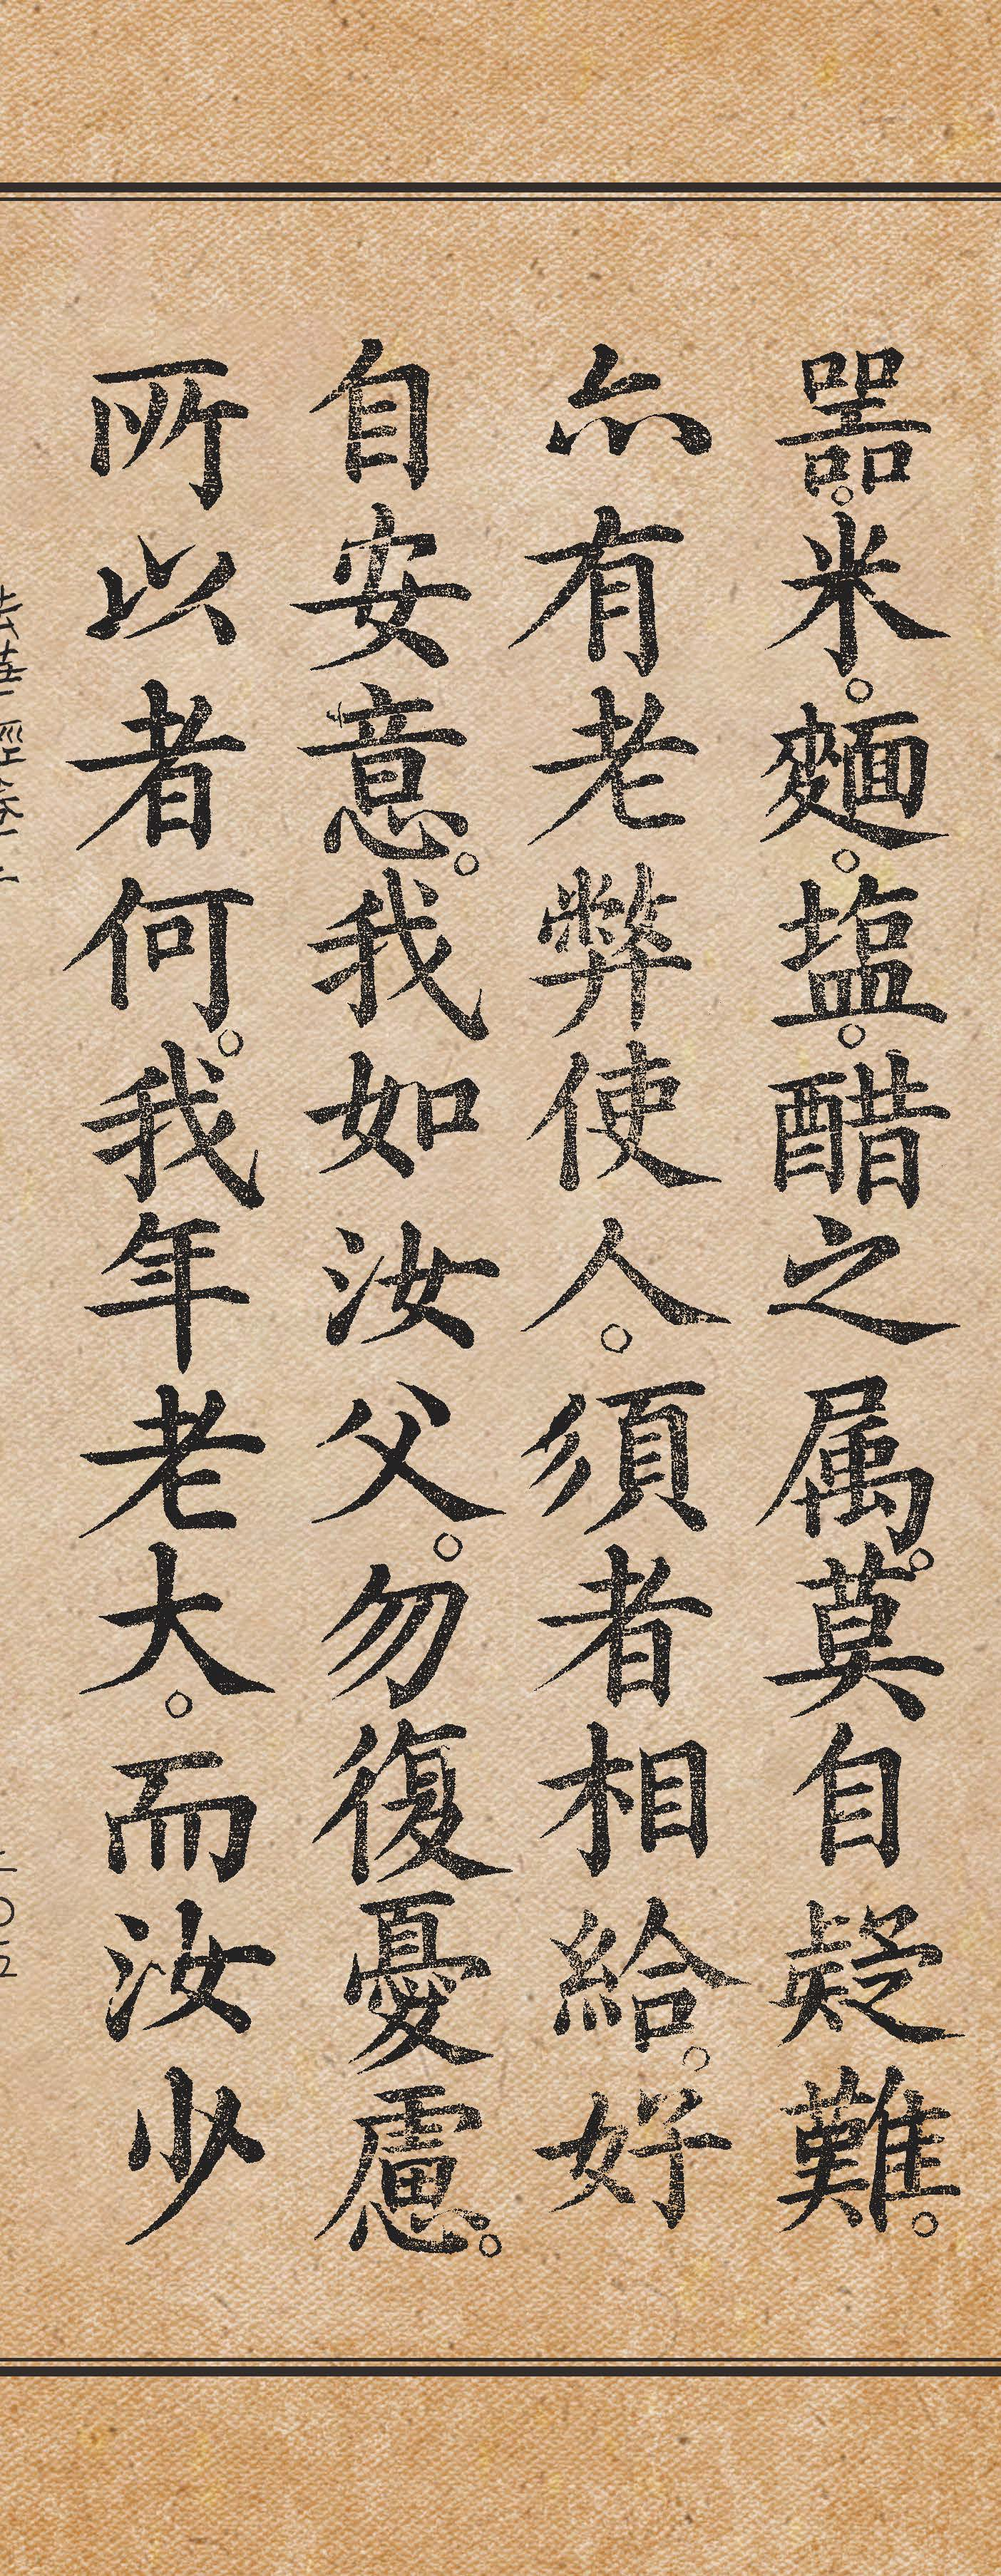 噐。米。麵。塩。醋之属。莫自疑難。
亦有老弊使人。須者相給。好
自安意。我如汝父。勿復憂慮。
所以者何。我年老大。而汝少